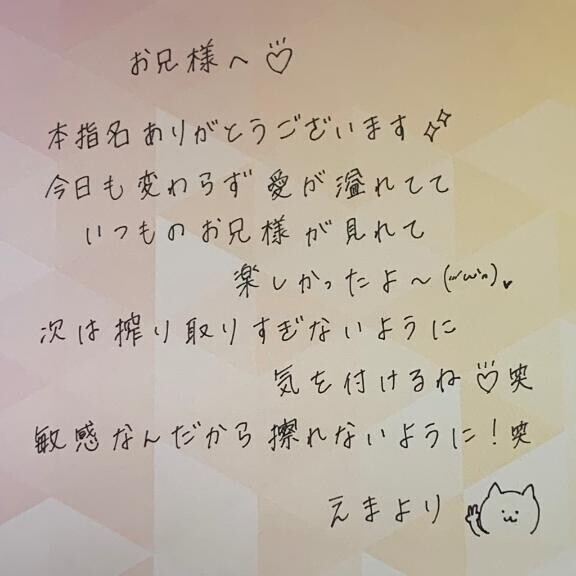 お兄様へ♡
本指名ありがとうございます✨
今日も変わらず愛が溢れてて
いつものお兄様が見れて
楽しかったよ〜(˶'ω'˶)♥
次は搾り取りすぎないように
気を付けるね♡笑
敏感なんだから擦れないように!笑
えまより